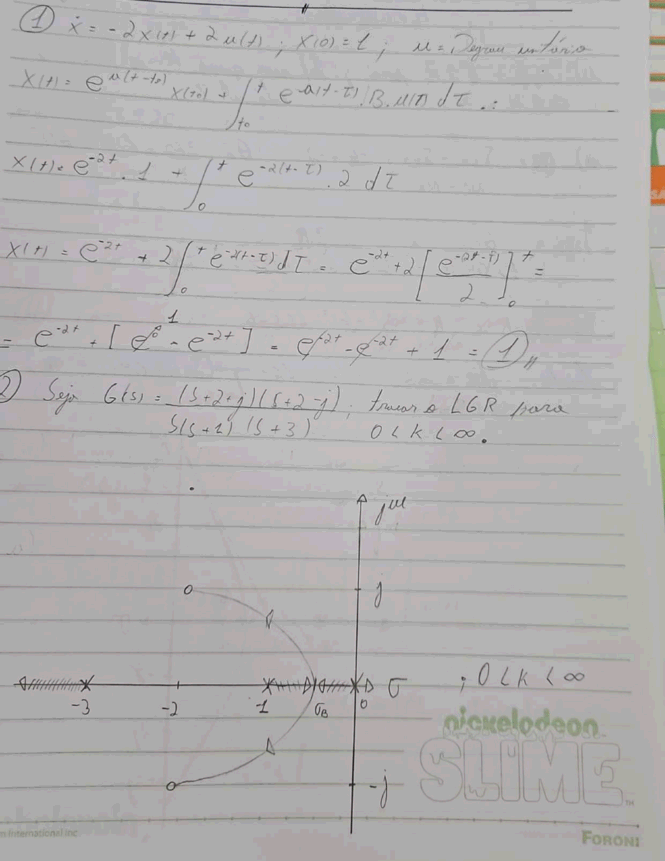 ① ẋ = -2x(t) + 2u(t) ; x(0) = 1 ; u = Degrau unitário
x(t) = e^{a(t-t₀)} x(t₀) + ∫_{t₀}^{t} e^{a(t-τ)} . B . u(τ) dτ ∴
x(t) = e^{-2t} . 1 + ∫_{0}^{t} e^{-2(t-τ)} . 2 dτ
x(t) = e^{-2t} + 2 ∫_{0}^{t} e^{-2(t-τ)} dτ = e^{-2t} + 2 [ e^{-2(t-τ)} / 2 ]_{0}^{t} =
= e^{-2t} + [ e^{0} 1 - e^{-2t} ] = e^{-2t} - e^{-2t} + 1 = 1 //
② Seja G(s) = (s+2+j)(s+2-j) / s(s+1)(s+3) ; traçar o LGR para
0 < k < ∞.
jω
j
-3 -2 -1 σ_B 0 σ ; 0 < k < ∞
-j
nickelodeon
SLIME
International Inc
FORONI